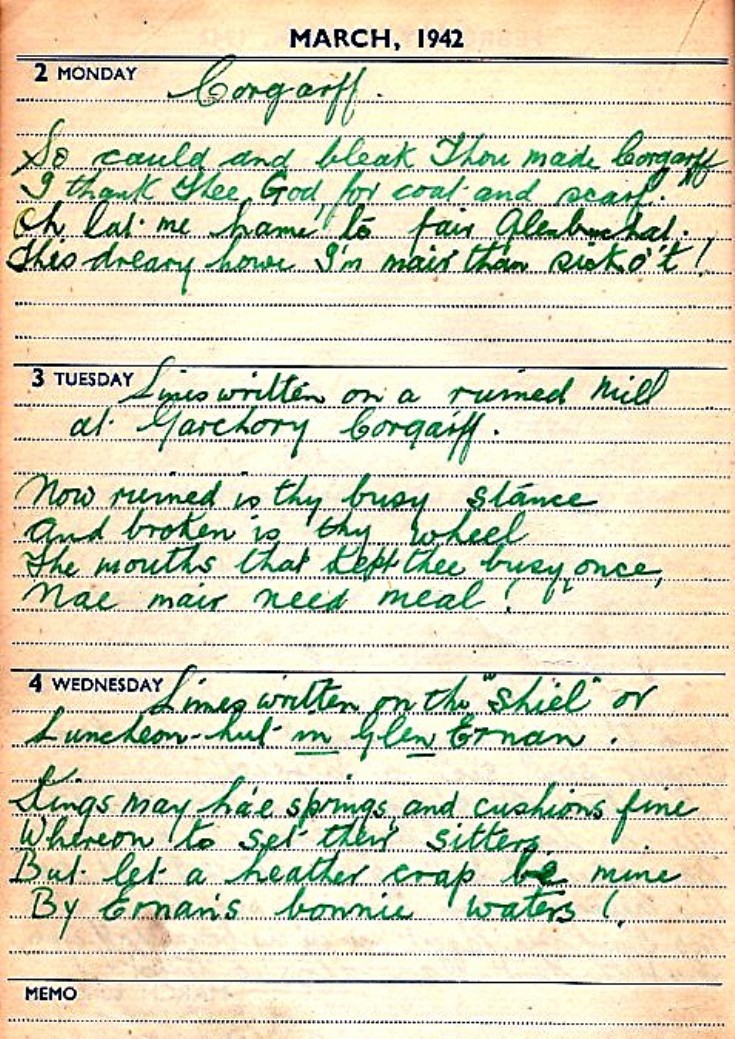 MARCH, 1942
2 MONDAY
Corgarff.
So cauld and bleak Thou made Corgarff
I thank Thee, God, for coat and scarf.
Oh lat me hame to fair Glenbuchat.
This dreary howe I'm mair than sick o't!
3 TUESDAY Lines written on a ruined Mill
at Garchory Corgarff.
Now ruined is thy busy stance
And broken is thy wheel
The mouths that kept thee busy once,
Nae mair need meal!
4 WEDNESDAY Lines written on the "Shiel" or
Luncheon-hut in Glen Ernan.
Kings may hae springs and cushions fine
Whereon to set their sitters
But let a heather crap be mine
By Ernan's bonnie waters!
MEMO